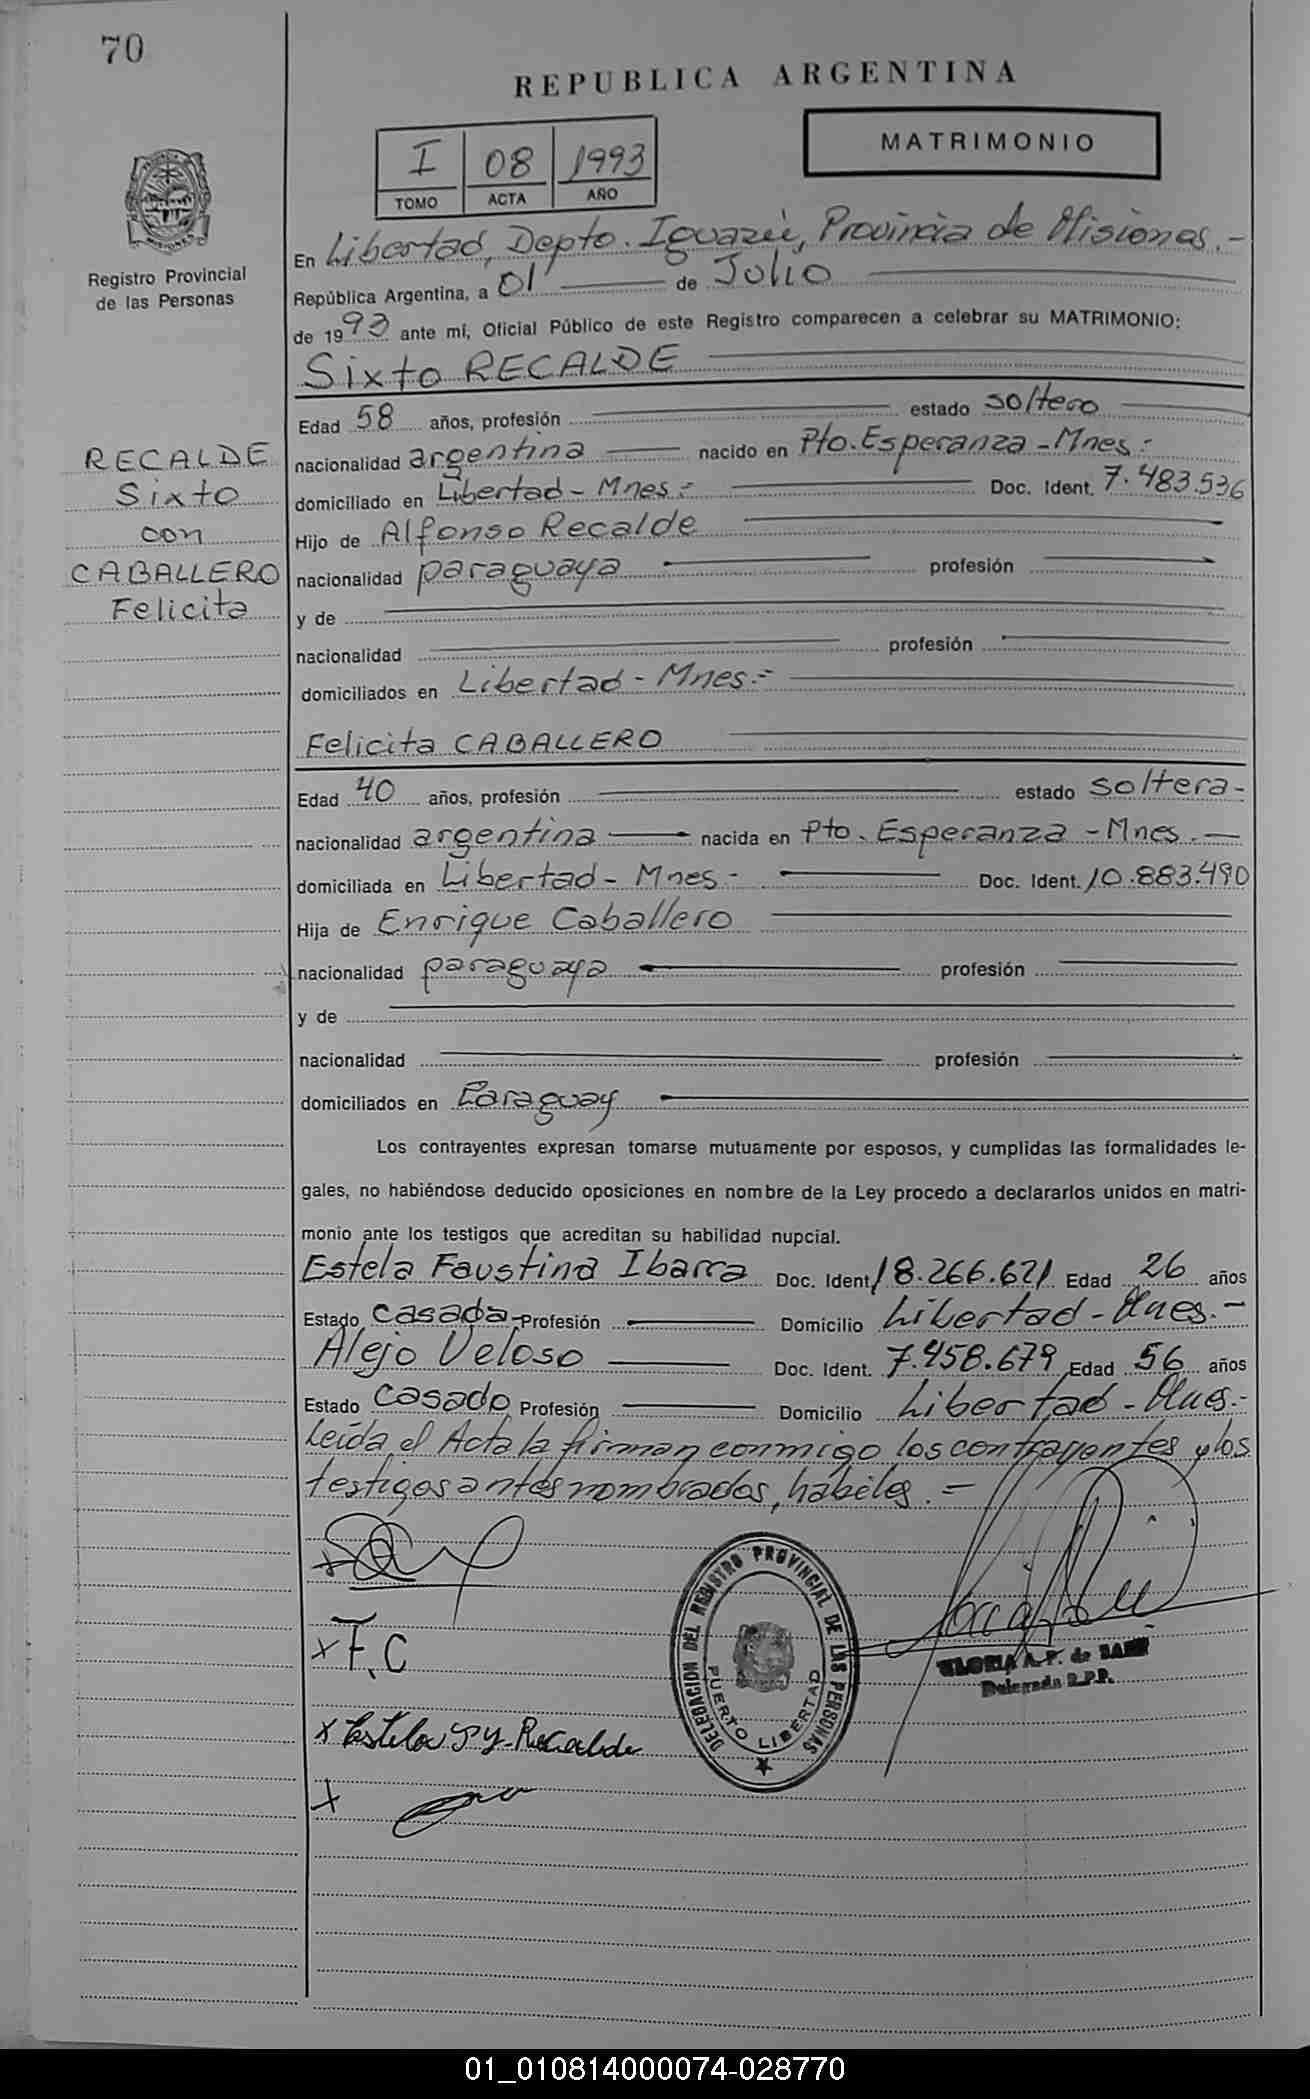 70
REPUBLICA ARGENTINA
MATRIMONIO
I 08 1993
TOMO ACTA AÑO
Registro Provincial
de las Personas
En Libertad, Depto. Iguazú, Provincia de Misiones.-
República Argentina, a 01 de Julio
de 1993 ante mí, Oficial Público de este Registro comparecen a celebrar su MATRIMONIO:
Sixto RECALDE
Edad 58 años, profesión estado soltero
nacionalidad argentina nacido en Pto. Esperanza - Mnes.-
domiciliado en Libertad - Mnes.- Doc. Ident. 7.483.536
Hijo de Alfonso Recalde
nacionalidad paraguaya profesión
y de
nacionalidad profesión
domiciliados en Libertad - Mnes.-
RECALDE
Sixto
con
CABALLERO
Felicita
Felicita CABALLERO
Edad 40 años, profesión estado soltera-
nacionalidad argentina nacida en Pto. Esperanza - Mnes.-
domiciliada en Libertad - Mnes- Doc. Ident. 10.883.490
Hija de Enrique Caballero
nacionalidad paraguaya profesión
y de
nacionalidad profesión
domiciliados en Paraguay
Los contrayentes expresan tomarse mutuamente por esposos, y cumplidas las formalidades le-
gales, no habiéndose deducido oposiciones en nombre de la Ley procedo a declararlos unidos en matri-
monio ante los testigos que acreditan su habilidad nupcial.
Estela Faustina Ibarra Doc. Ident. 18.266.621 Edad 26 años
Estado Casada- Profesión Domicilio Libertad - Mnes.-
Alejo Veloso Doc. Ident. 7.458.679 Edad 56 años
Estado Casado Profesión Domicilio Libertad - Mnes.-
Leída el Acta la firman conmigo los contrayentes y los
testigos antes nombrados, hábiles.-
x F.C
DELEGACION DEL REGISTRO PROVINCIAL DE LAS PERSONAS
PUERTO LIBERTAD
GLORIA A. P. de
Delegada R.P.P.
x Estela Recalde
x
01_010814000074-028770